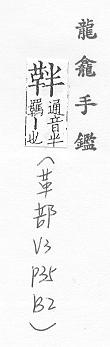 龍龕手鑑
靽通音半羈丨也(革部 V3 P35 B2)